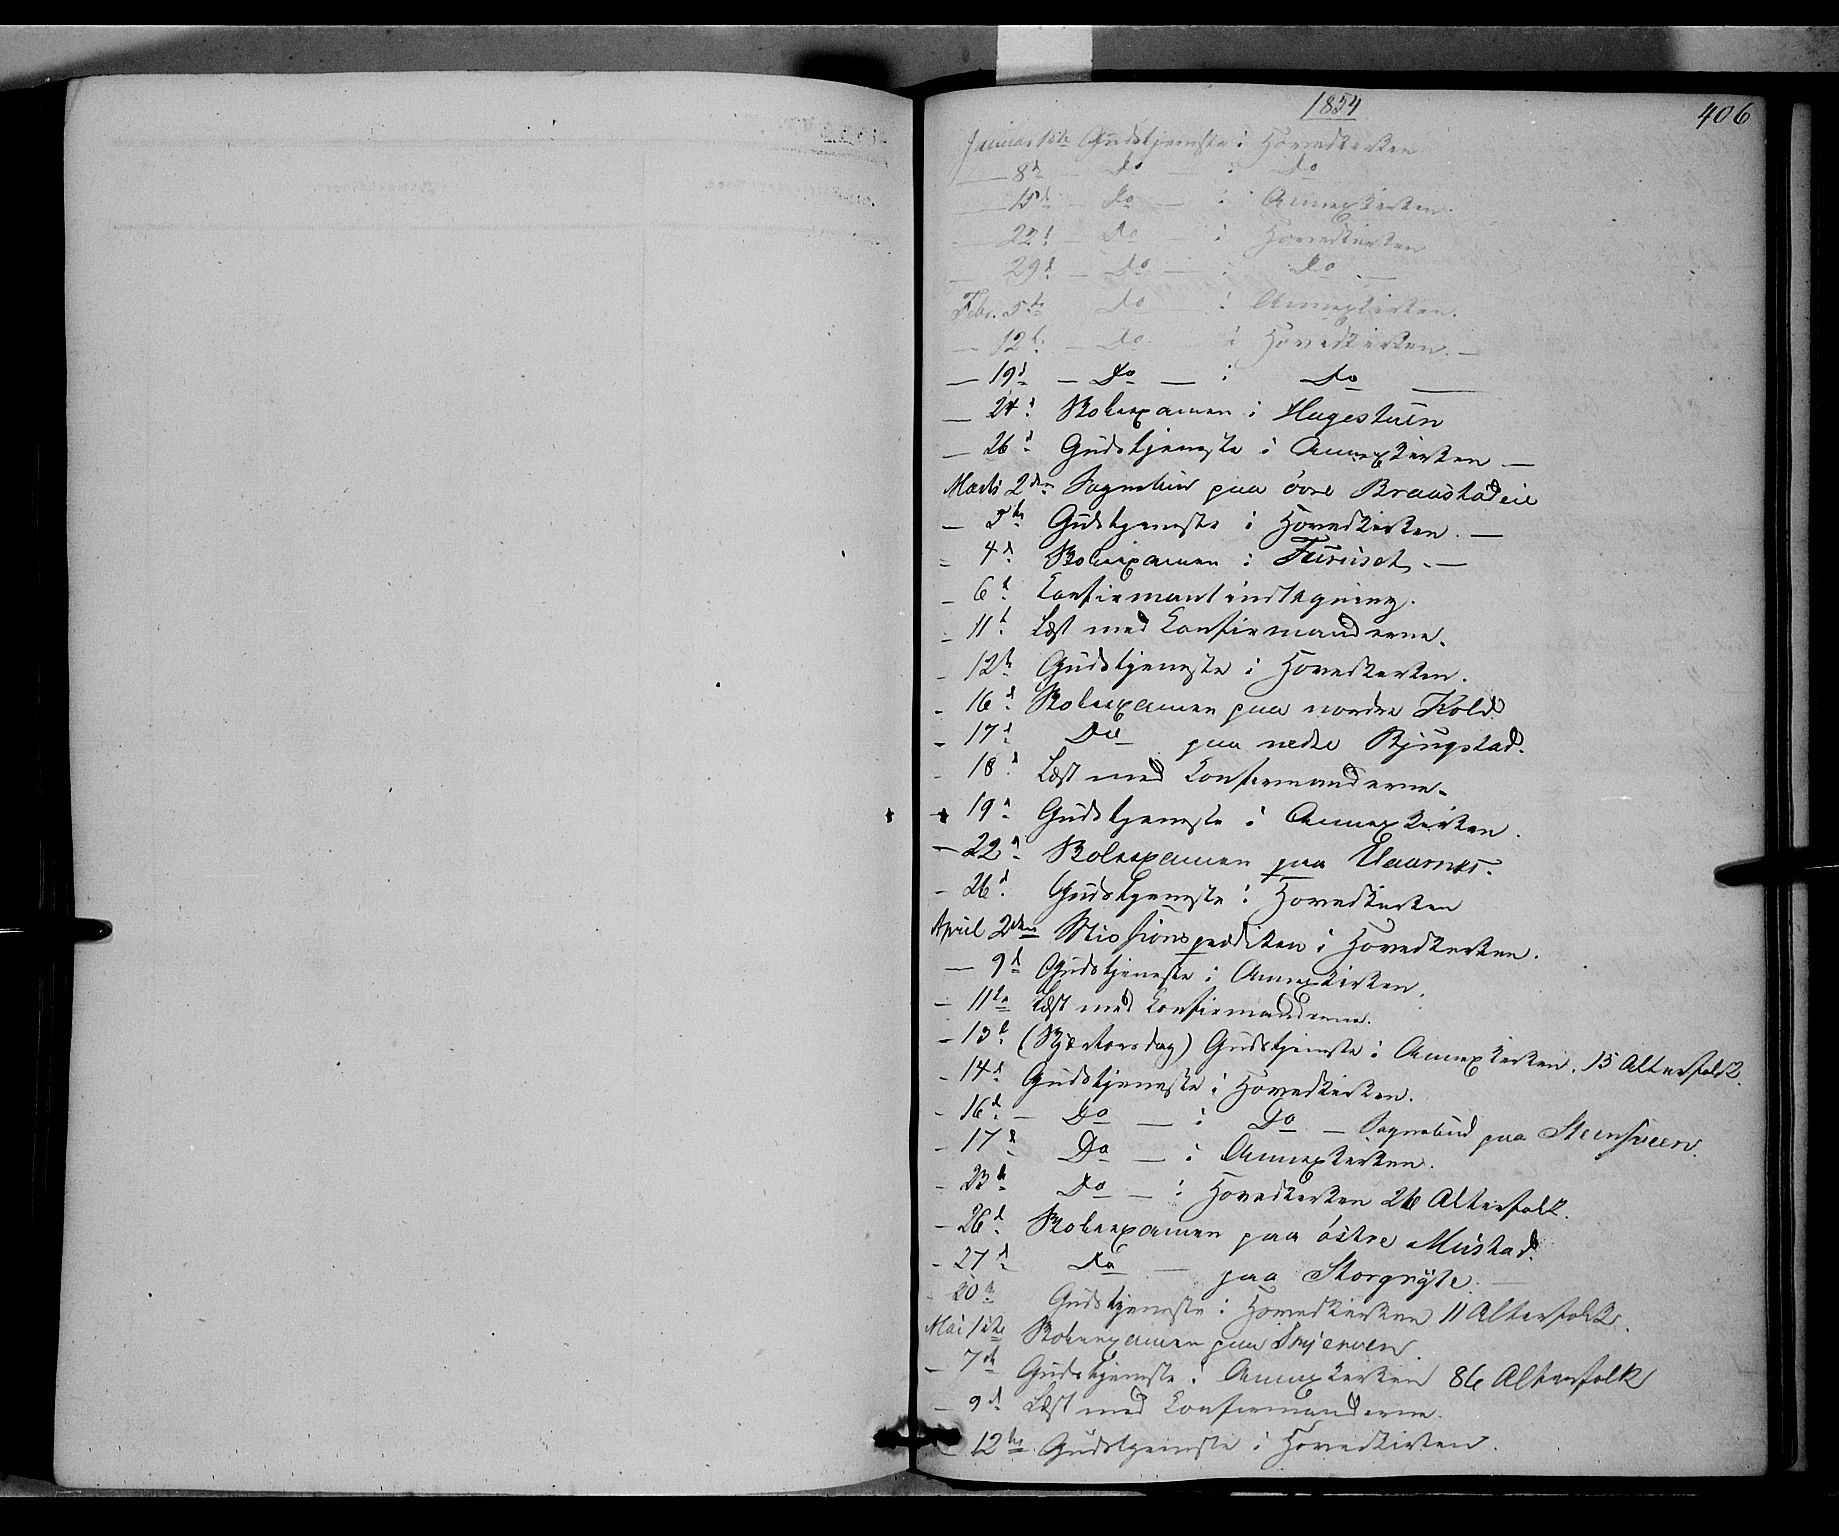 1854
406
Januar 1ste Gudstjeneste i Hovedkirken
— 8d — Do — i Do
— 15d — Do — i Annexkirken.
— 22d — Do — i Hovedkirken
— 29d — Do — i Do —
Febr. 5te Do i Annexkirken.
— 12te — Do i Hovedkirken. —
— 19d — Do — i Do —
— 24d Skoleexamen i Hagestuen
— 26d Gudstjeneste i Annexkirken —
Marts 2den Sognebud paa övre Braastadeie
— 5te Gudstjeneste i Hovedkirken. —
— 4d Skoleexamen i Furuset. —
— 6d Confirmantindtagning.
— 11t Læst med Confirmanderne.
— 12te Gudstjeneste i Hovedkirken.
— 16d Skoleexamen paa nordre Kold.
— 17d Do paa nedre Bjugstad.
— 18d Læst med Confirmanderne.
— 19d Gudstjeneste i Annexkirken.
— 22d Skoleexamen paa
— 26d Gudstjeneste i Hovedkirken
April 2den Missionspræditen i Hovedkirken.
— 9d Gudstjeneste i Annexkirken.
— 11te Læst med Confirmanderne.
— 13d (Skjærtorsdag) Gudstjeneste i Annexkirken. 15 Alterfolk.
— 14d Gudstjeneste i Hovedkirken.
— 16d — Do — i Do — Sognebud paa
— 17d Do — i Annexkirken.
— 23d Do — i Hovedkirken 26 Alterfolk.
— 26d Skoleexamen paa östre Mustad.
— 27d Do — paa
— 30te Gudstjeneste i Hovedkirken 11 Alterfolk.
Mai 1ste Skoleexamen paa
— 7de Gudstjeneste i Annexkirken 86 Alterfolk
— 9d Læst med Confirmanderne.
— 12te Gudstjeneste i Hovedkirken.